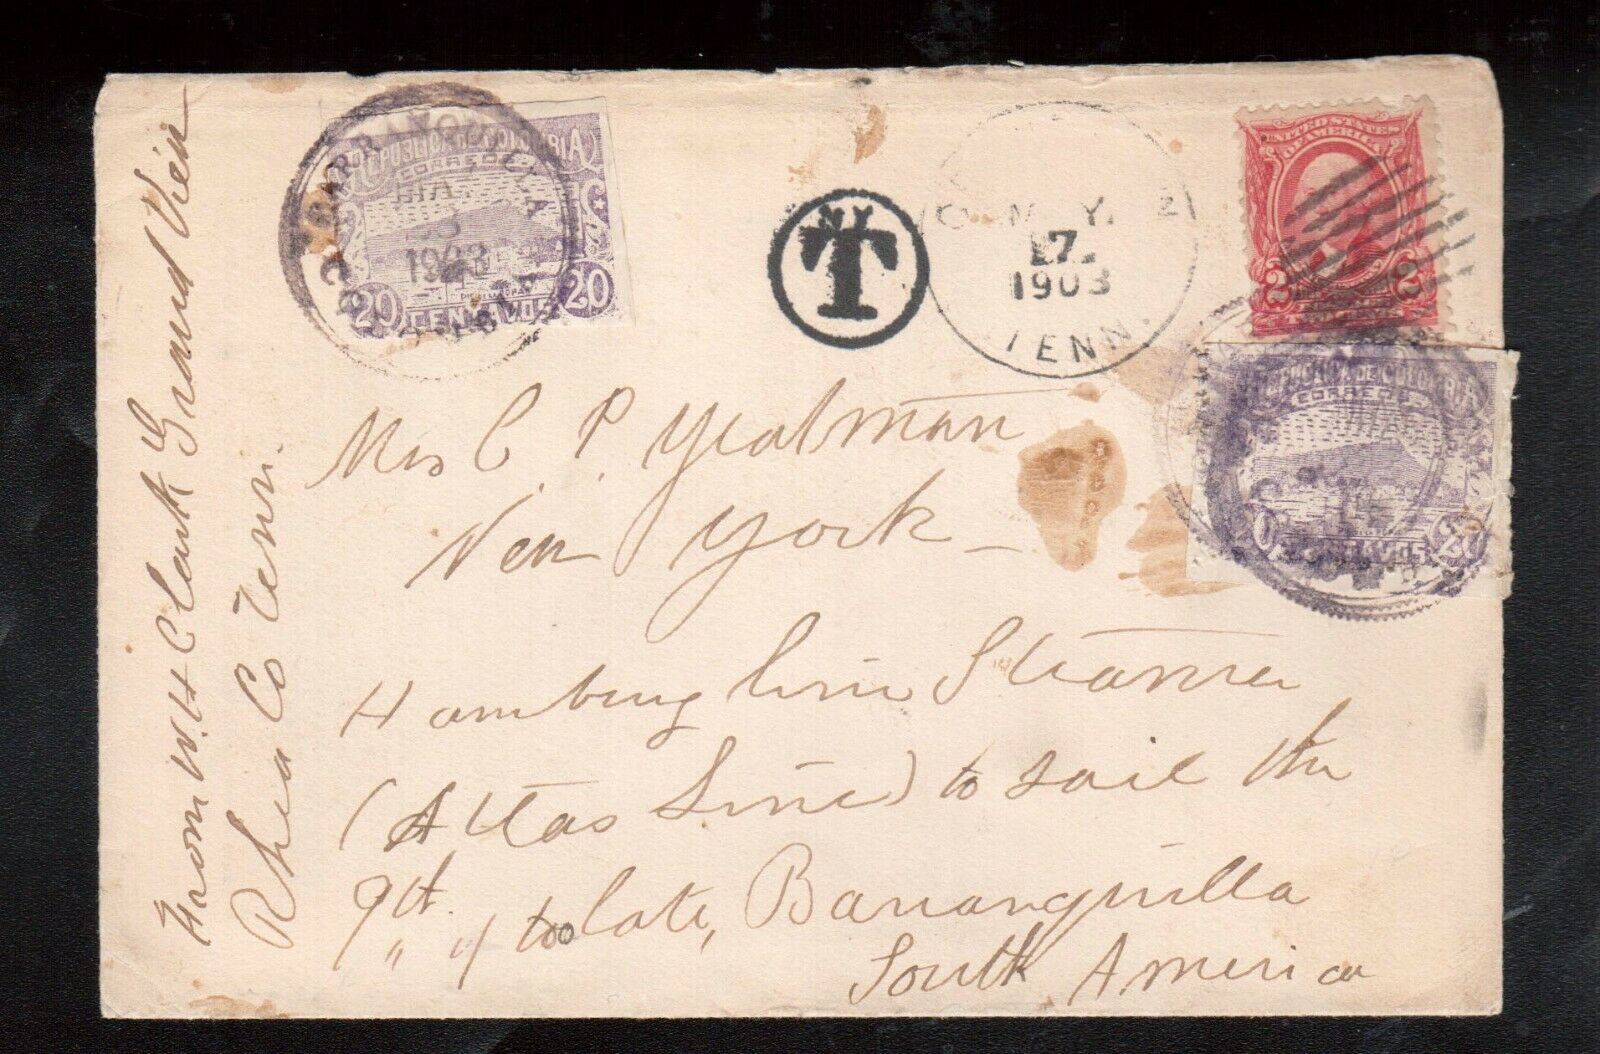 From W. H. Clark Grand View
Rhea Co Tenn.
REPUBLICA DE COLOMBIA
CORREOS
20 20
CENTAVOS
1903
N.Y.
T
17
1903
TENN.
UNITED STATES
OF AMERICA
2 2
TWO CENTS
REPUBLICA DE COLOMBIA
CORREOS
20
CENTAVOS
Mrs C. P. Yeatman
New York
Hamburg Line Steamer
(Attas Line) to sail the
9th. " if too late, Bananquilla
South America